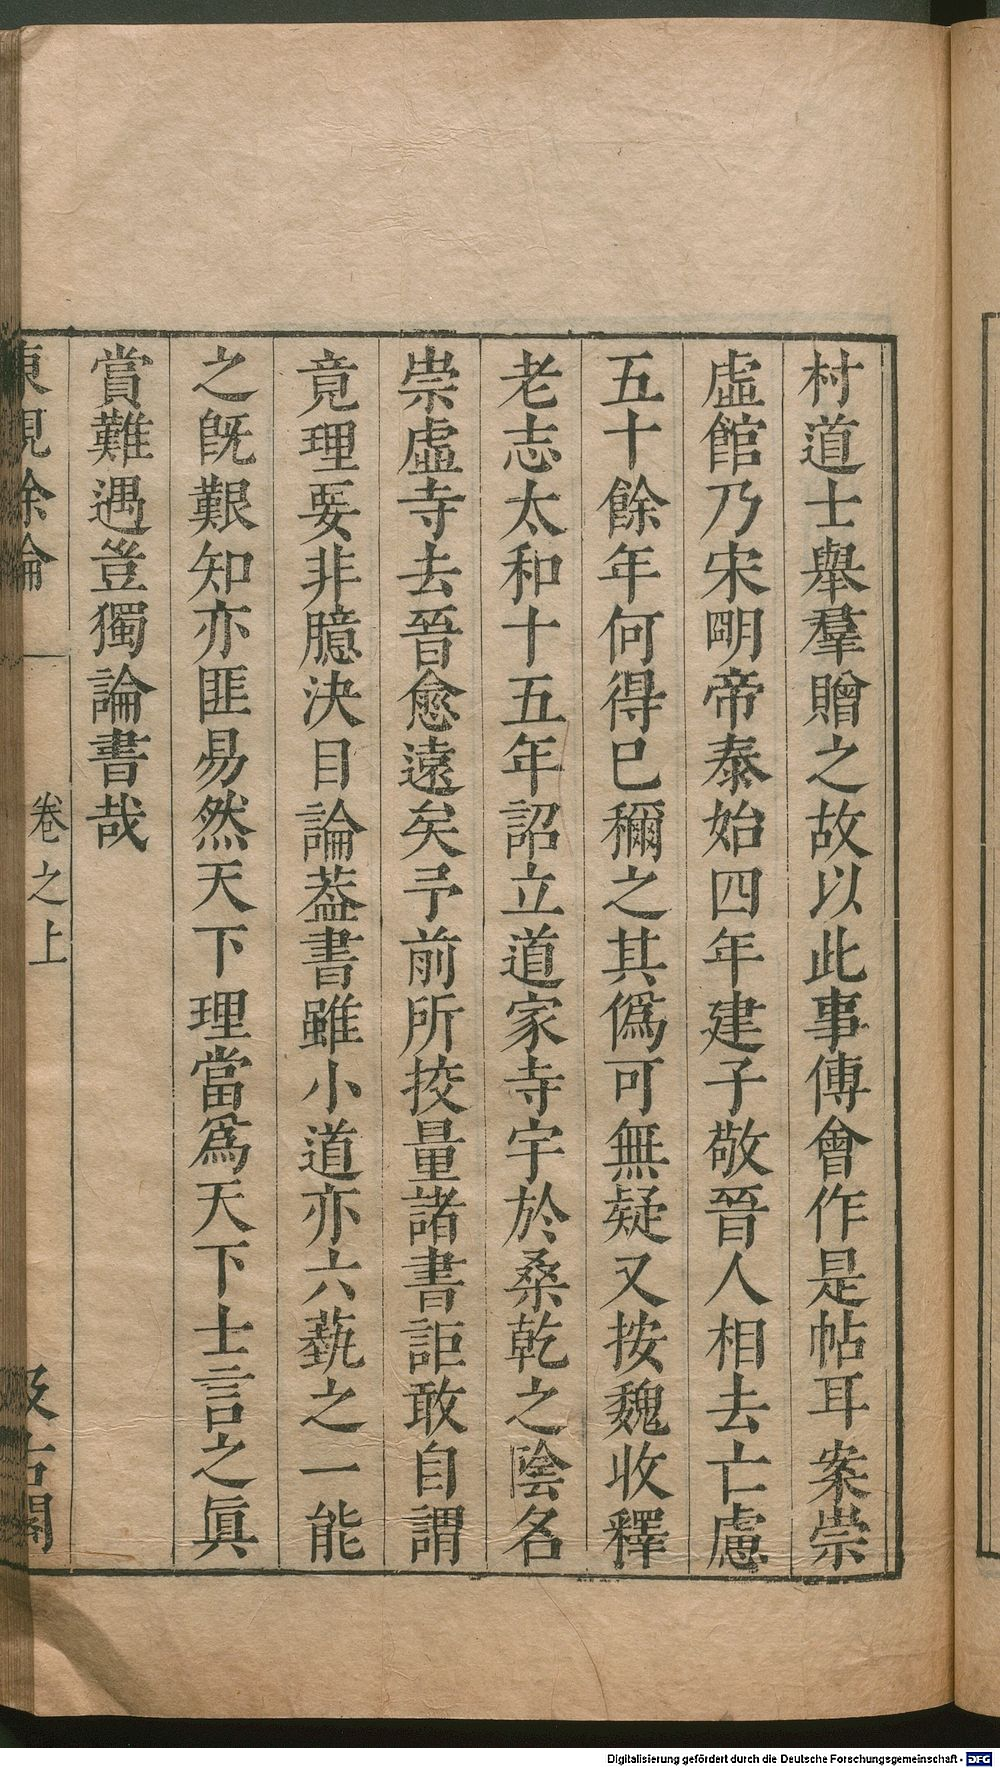 村道士舉羣贈之故以此事傅會作是帖耳案崇
虛館乃宋明帝泰始四年建子敬晉人相去亡慮
五十餘年何得已稱之其僞可無疑又按魏收釋
老志太和十五年詔立道家寺宇於桑乾之陰名
崇虛寺去晉愈遠矣予前所挍量諸書詎敢自謂
竟理要非臆決目論葢書雖小道亦六藝之一能
之旣艱知亦匪易然天下理當爲天下士言之眞
賞難遇豈獨論書哉
東觀餘論 卷之上 汲古閣
Digitalisierung gefördert durch die Deutsche Forschungsgemeinschaft - DFG